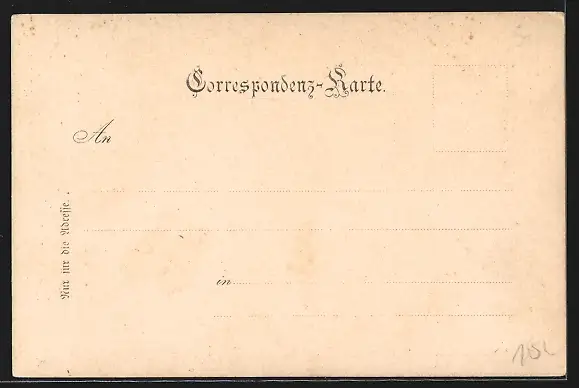 Correspondenz-Karte.
An
in
Nur für die Adresse.